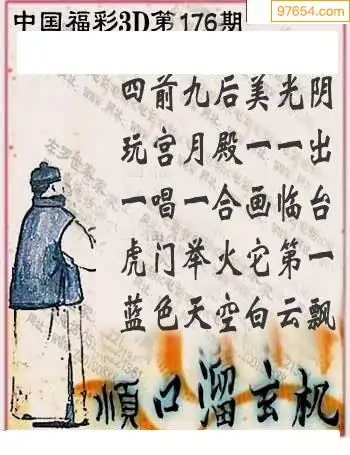 97654.com
中国福彩3D第176期
四前九后美光阴
玩宫月殿一一出
一唱一合画临台
虎门举火它第一
蓝色天空白云飘
顺口溜玄机